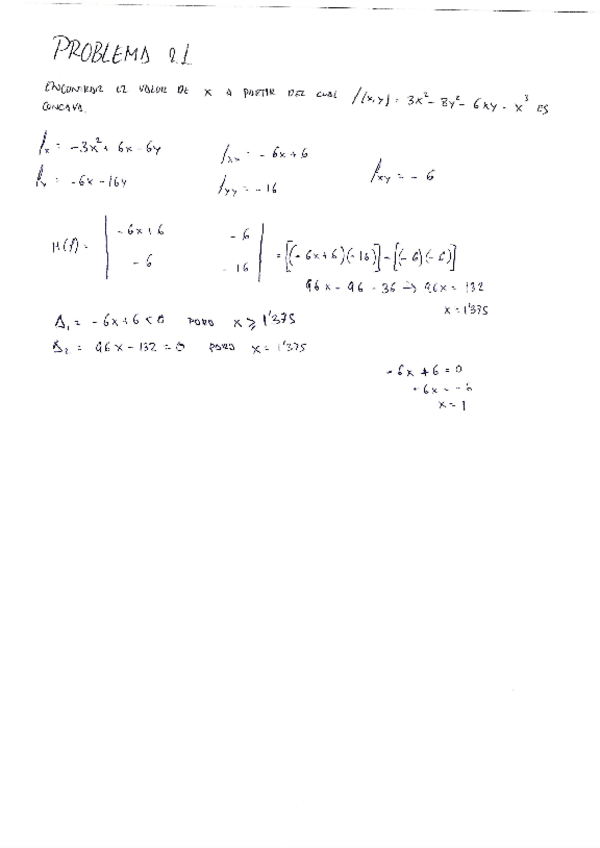 PROBLEMA 2.1
ENCONTRAR EL VALOR DE X A PARTIR DEL CUAL f(x,y) = 3x² - 8y² - 6xy - x³ ES
CONCAVA.
fx = -3x² + 6x - 6y
fxx = -6x + 6
fxy = -6
fy = -6x - 16y
fyy = -16
H(f) = | -6x+6 -6 |
| -6 -16 | = [(-6x+6)(-16)] - [(-6)(-6)]
96x - 96 - 36 → 96x = 132
x = 1'375
Δ₁ = -6x + 6 < 0 PARA x ⩾ 1'375
Δ₂ = 96x - 132 = 0 PARA x = 1'375
-6x + 6 = 0
-6x = -6
x = 1